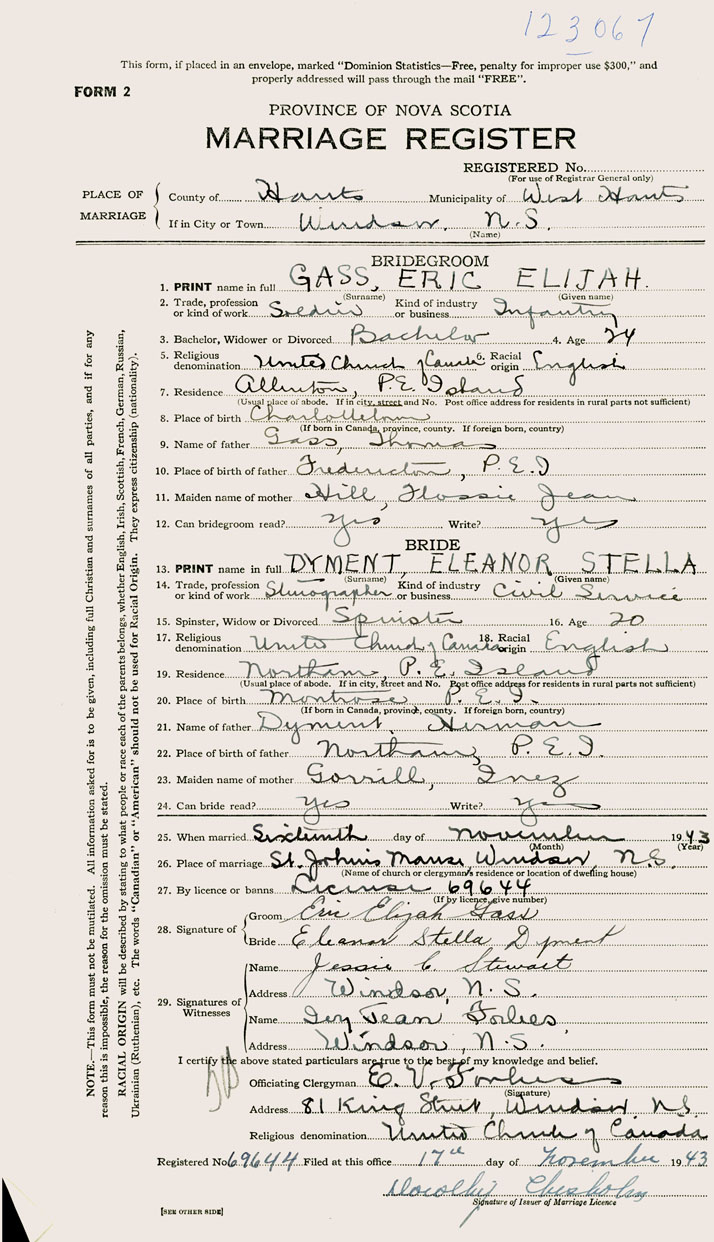 123067
This form, if placed in an envelope, marked "Dominion Statistics—Free, penalty for improper use $300," and
properly addressed will pass through the mail "FREE".
FORM 2
PROVINCE OF NOVA SCOTIA
MARRIAGE REGISTER
REGISTERED No.
(For use of Registrar General only)
PLACE OF MARRIAGE
County of Hants Municipality of West Hants
If in City or Town Windsor, N.S.
(Name)
BRIDEGROOM
1. PRINT name in full GASS, ERIC ELIJAH.
(Surname) (Given name)
2. Trade, profession or kind of work Soldier Kind of industry or business Infantry
3. Bachelor, Widower or Divorced Bachelor 4. Age 24
5. Religious denomination United Church of Canada 6. Racial origin English
7. Residence Allinton, P.E. Island
(Usual place of abode. If in city, street and No. Post office address for residents in rural parts not sufficient)
8. Place of birth Charlottetown
(If born in Canada, province, county. If foreign born, country)
9. Name of father Gass, Thomas
10. Place of birth of father Fredericton, P.E.I
11. Maiden name of mother Hill, Flossie Jean
12. Can bridegroom read? Yes Write? Yes
BRIDE
13. PRINT name in full DYMENT, ELEANOR STELLA
(Surname) (Given name)
14. Trade, profession or kind of work Stenographer Kind of industry or business Civil Service
15. Spinster, Widow or Divorced Spinster 16. Age 20
17. Religious denomination United Church of Canada 18. Racial origin English
19. Residence Northam, P.E. Island
(Usual place of abode. If in city, street and No. Post office address for residents in rural parts not sufficient)
20. Place of birth Montrose P.E.I.
(If born in Canada, province, county. If foreign born, country)
21. Name of father Dyment, Herman
22. Place of birth of father Northam, P.E.I.
23. Maiden name of mother Gorrill, Inez
24. Can bride read? Yes Write? Yes
25. When married Sixteenth day of November 1943
(Month) (Year)
26. Place of marriage St. Johns Manse, Windsor, N.S.
(Name of church or clergyman's residence or location of dwelling house)
27. By licence or banns License 69644
(If by licence, give number)
28. Signature of
Groom Eric Elijah Gass
Bride Eleanor Stella Dyment
29. Signatures of Witnesses
Name Jessie C. Stewart
Address Windsor, N.S.
Name Ivy Jean Forbes
Address Windsor, N.S.
I certify the above stated particulars are true to the best of my knowledge and belief.
Officiating Clergyman E. V. Forbes
(Signature)
Address 81 King Street, Windsor, N.S.
Religious denomination United Church of Canada
Registered No. 69644 Filed at this office 17th day of November 1943
Dorothy Chisholm
Signature of Issuer of Marriage Licence
[SEE OTHER SIDE]
NOTE.—This form must not be mutilated. All information asked for is to be given, including full Christian and surnames of all parties, and if for any
reason this is impossible, the reason for the omission must be stated.
RACIAL ORIGIN will be described by stating to what people or race each of the parents belongs, whether English, Irish, Scottish, French, German, Russian,
Ukrainian (Ruthenian), etc. The words "Canadian" or "American" should not be used for Racial Origin. They express citizenship (nationality).